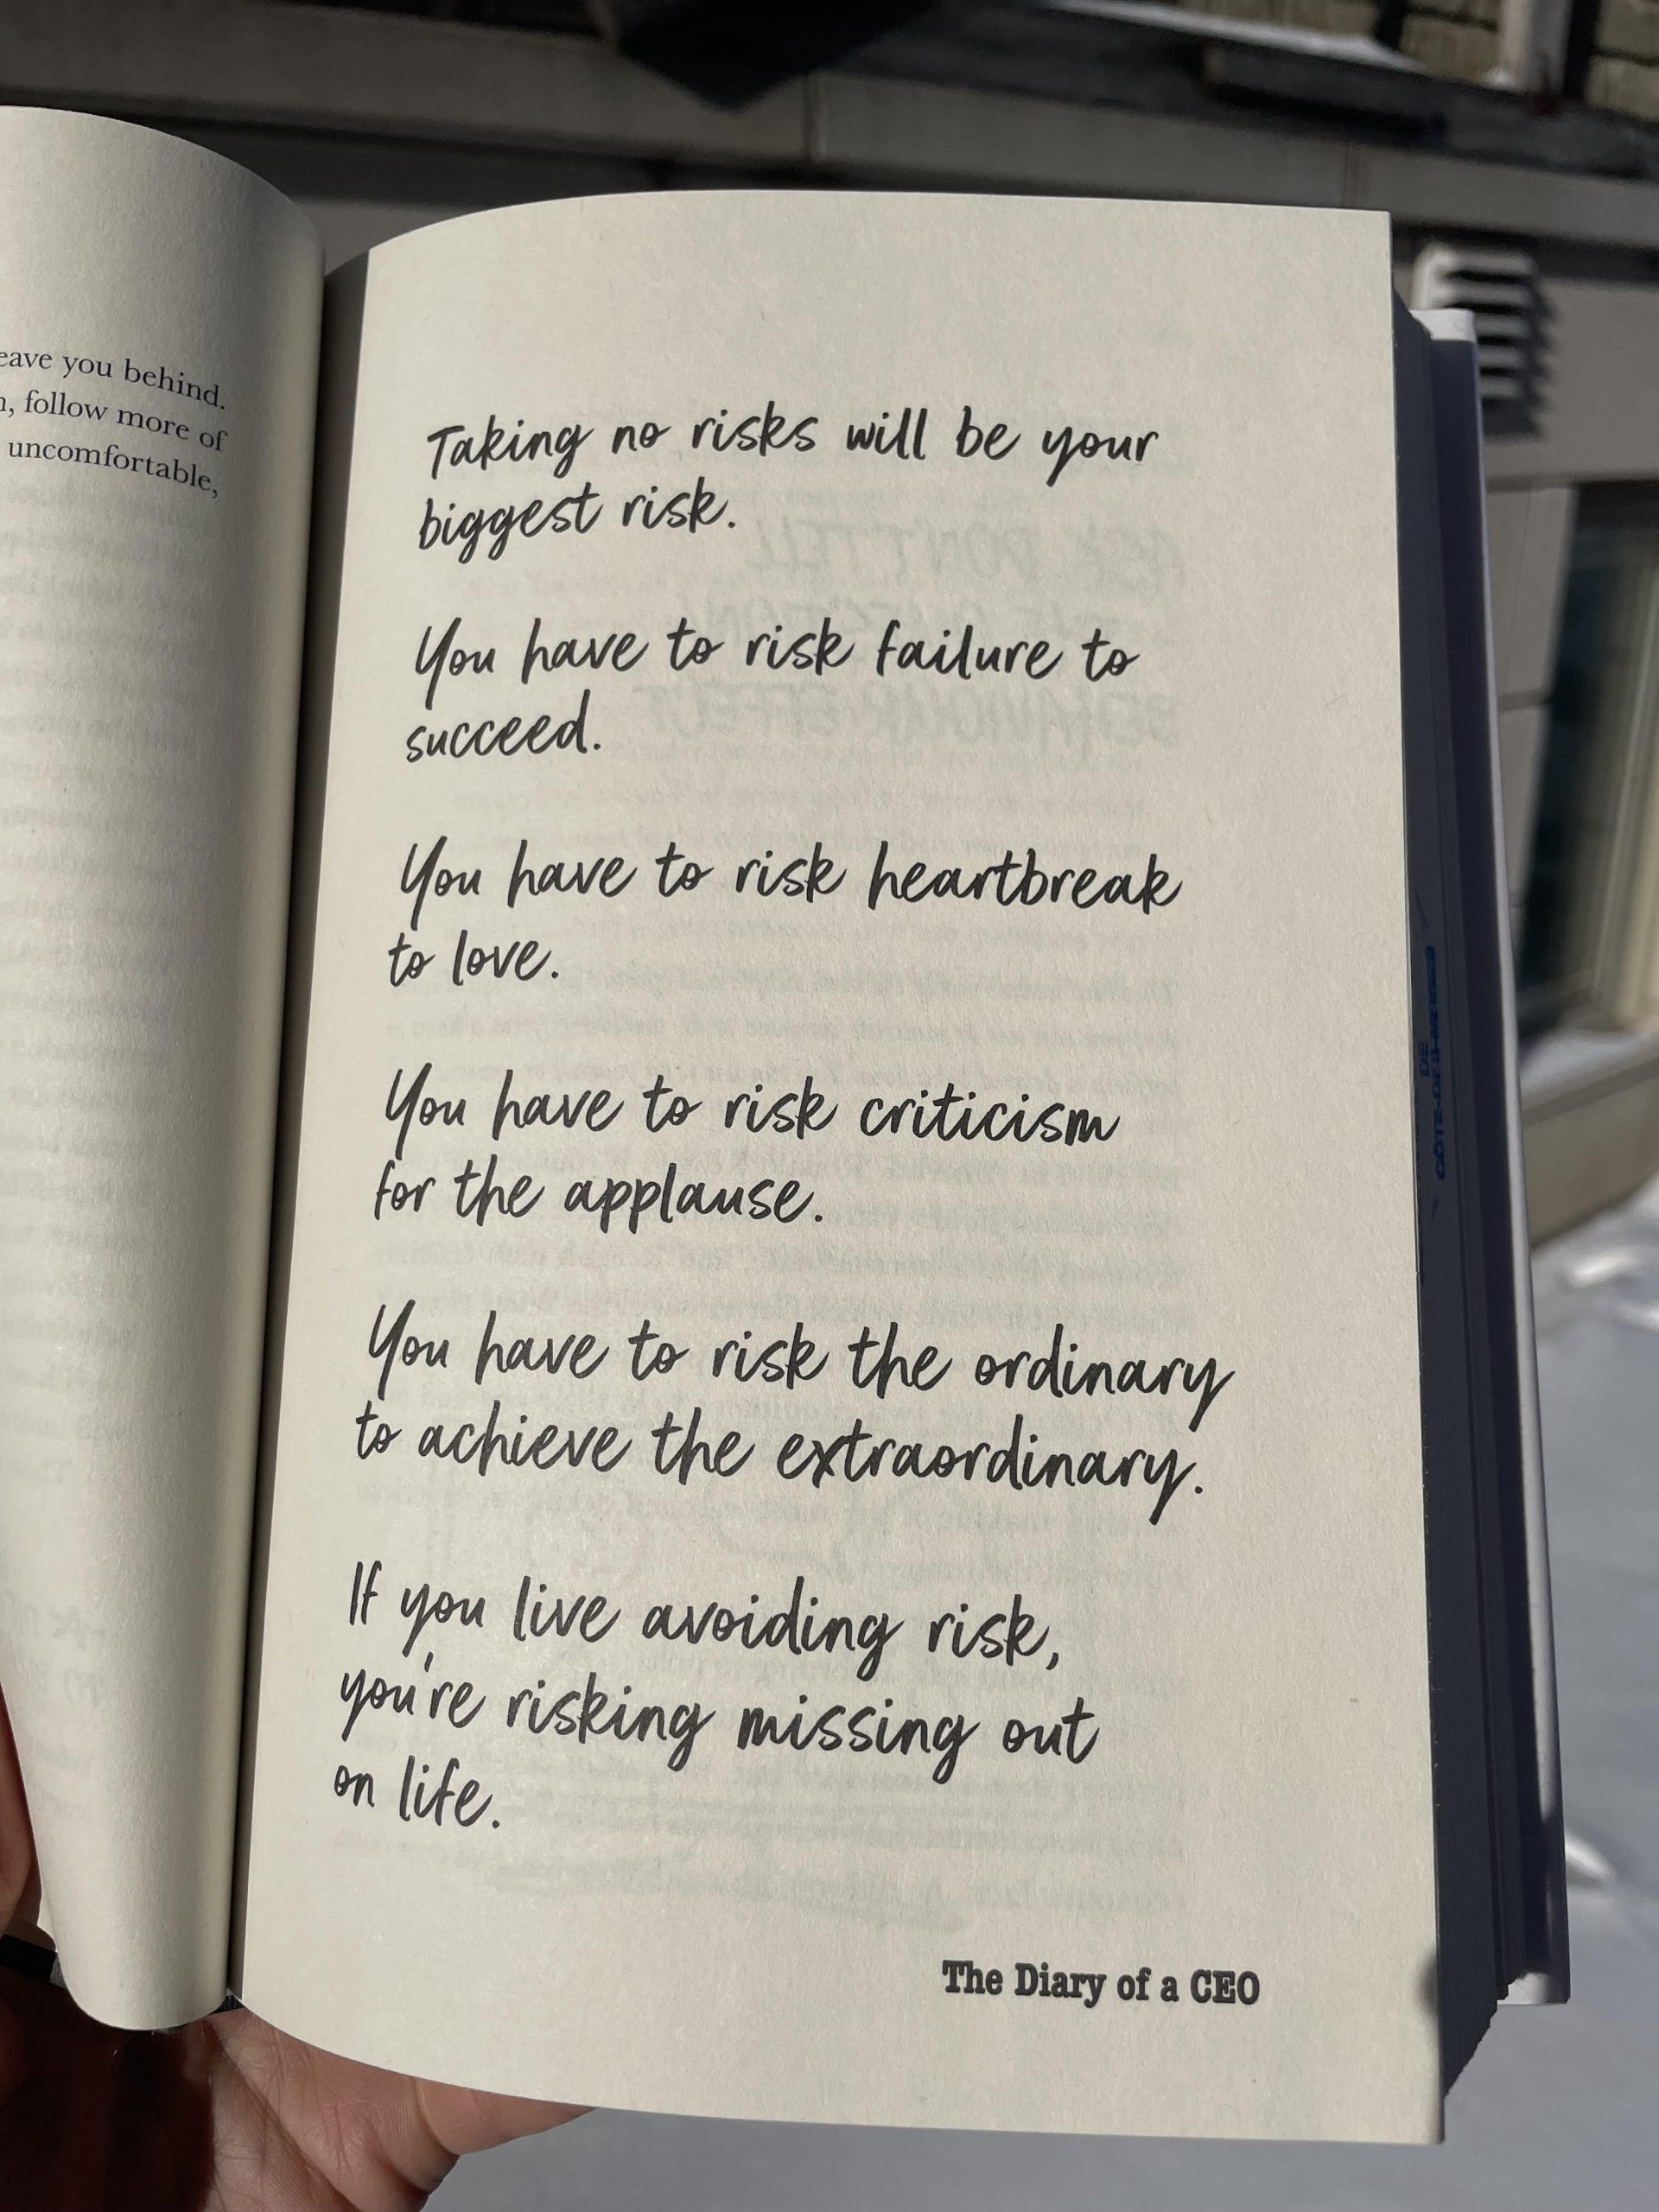 eave you behind.
, follow more of
uncomfortable,
Taking no risks will be your
biggest risk.
You have to risk failure to
succeed.
You have to risk heartbreak
to love.
You have to risk criticism
for the applause.
You have to risk the ordinary
to achieve the extraordinary.
If you live avoiding risk,
you're risking missing out
on life.
The Diary of a CEO
DE
CÔTE-DES-NEIGES